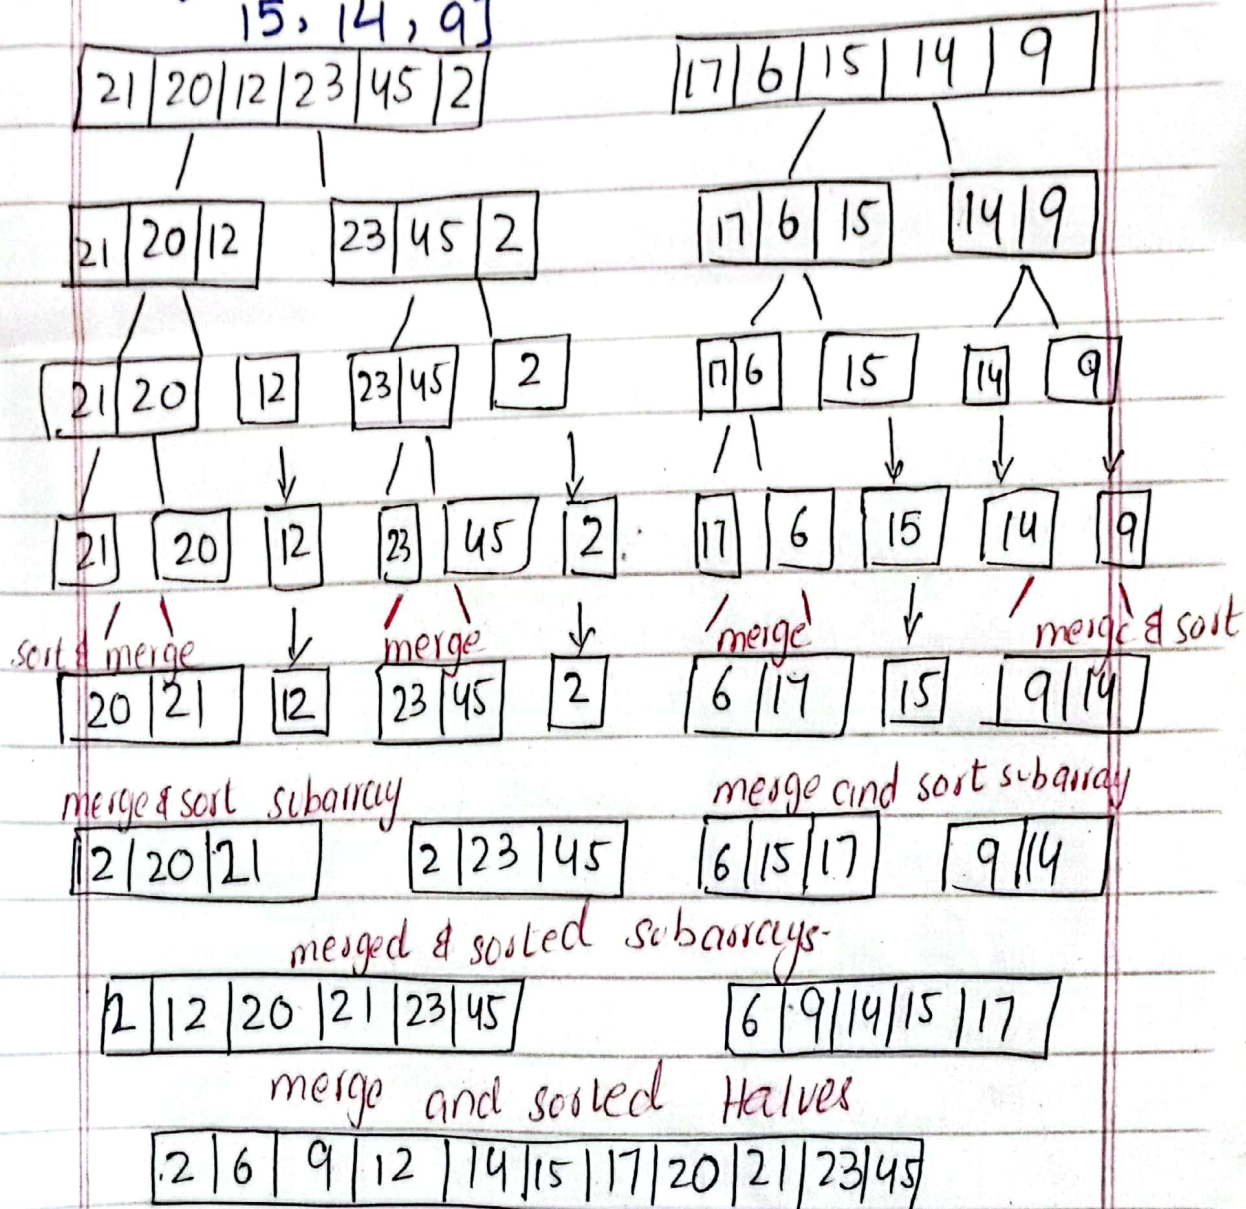 15, 14, 9]
21 20 12 23 45 2 17 6 15 14 9
21 20 12 23 45 2 17 6 15 14 9
21 20 12 23 45 2 17 6 15 14 9
21 20 12 23 45 2 17 6 15 14 9
sort & merge merge merge merge & sort
20 21 12 23 45 2 6 17 15 9 14
merge & sort subarray merge and sort subarray
12 20 21 2 23 45 6 15 17 9 14
merged & sorted subarrays-
2 12 20 21 23 45 6 9 14 15 17
merge and sorted Halves
2 6 9 12 14 15 17 20 21 23 45